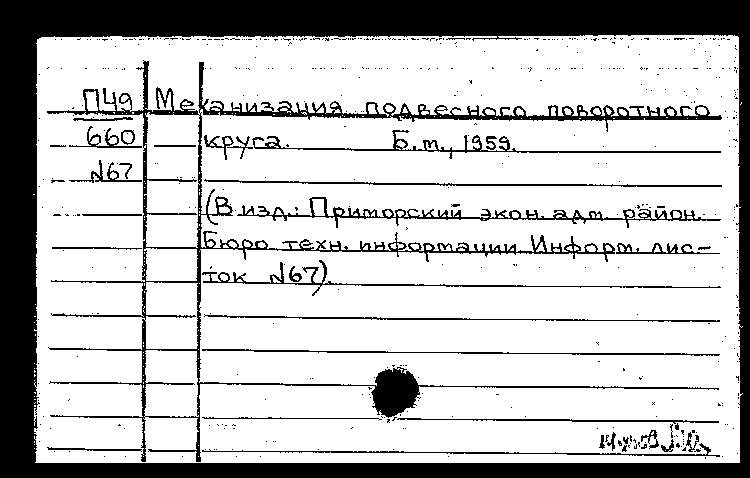 П49 Механизация подвесного поворотного
660 круга. Б.т., 1959.
№67
(В изд.: Приморский экон. адм. район.
Бюро техн. информации. Информ. лис-
ток №67).